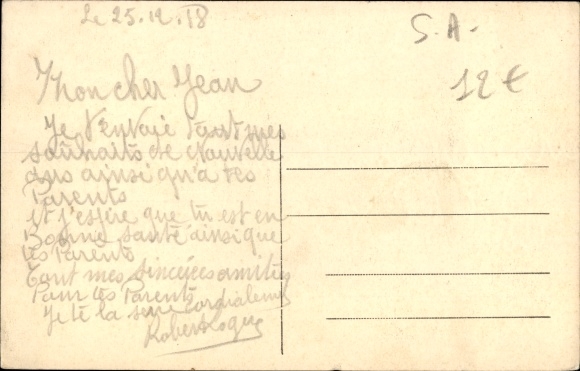 Le 25.12.18
S.A.
12€
Mon cher Jean
Je t'envoie tout mes
souhaits de Nouvelle
ans ainsi qu'a tes
Parents
et j'espère que tu est en
Bonne santé ainsi que
tes Parents
Tout mes sincères amitiés
Pour tes Parents
Je te la serre cordialement
Robert